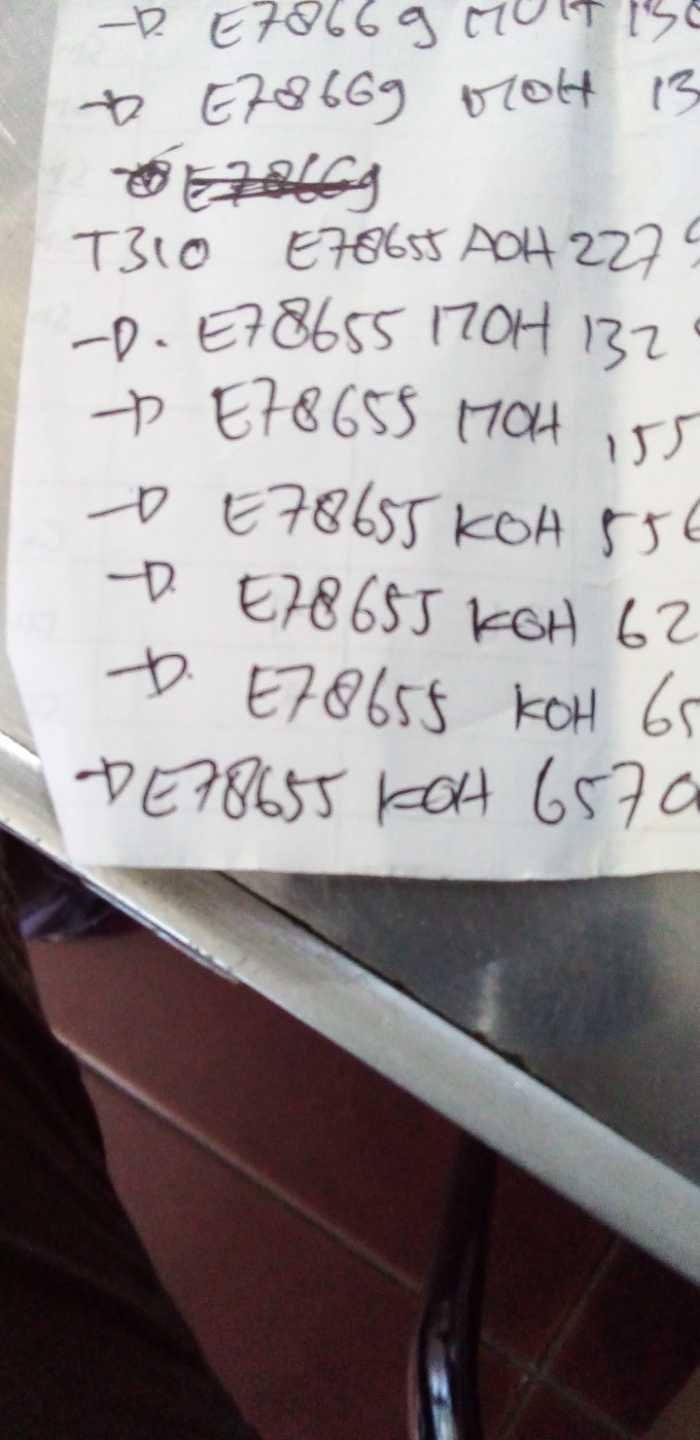 -D. E78669 MOH 138
-D E78669 MOH 13
E78669
T310 E78655 AOH 227
-D. E78655 MOH 132
-D E78655 MOH 155
-D E78655 KOH 556
-D. E78655 KOH 62
-D. E78655 KOH 65
-D E78655 KOH 6570